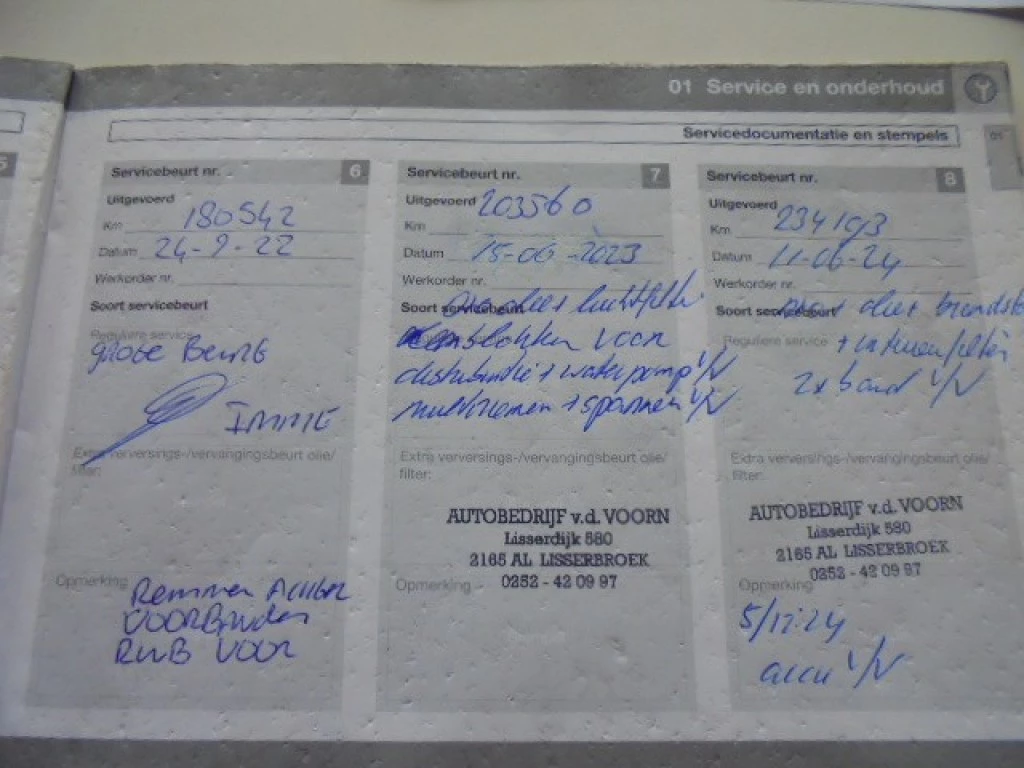 01 Service en onderhoud
Servicedocumentatie en stempels
01
5
Servicebeurt nr. 6
Uitgevoerd
Km 180542
Datum 24-9-22
Werkorder nr.
Soort servicebeurt
Reguliere service
grote Beurt
Extra verversings-/vervangingsbeurt olie/
filter:
Opmerking Remmen Achter
VOORBanden
VOOR
Servicebeurt nr. 7
Uitgevoerd 203560
Km
Datum 15-06-2023
Werkorder nr.
Soort servicebeurt olie + luchtfilter
remblokken voor
distributie + waterpomp V/V
multiriemen + spannen V/V
Extra verversings-/vervangingsbeurt olie/
filter:
AUTOBEDRIJF v.d. VOORN
Lisserdijk 580
2165 AL LISSERBROEK
0252 - 42 09 97
Opmerking
Servicebeurt nr. 8
Uitgevoerd
Km 234193
Datum 11-06-24
Werkorder nr.
Soort servicebeurt olie + brandst
Reguliere service + interieurfilter
2x band V/V
Extra verversings-/vervangingsbeurt olie/
filter:
AUTOBEDRIJF v.d. VOORN
Lisserdijk 580
2165 AL LISSERBROEK
0252 - 42 09 97
Opmerking
5/12-24
accu V/V